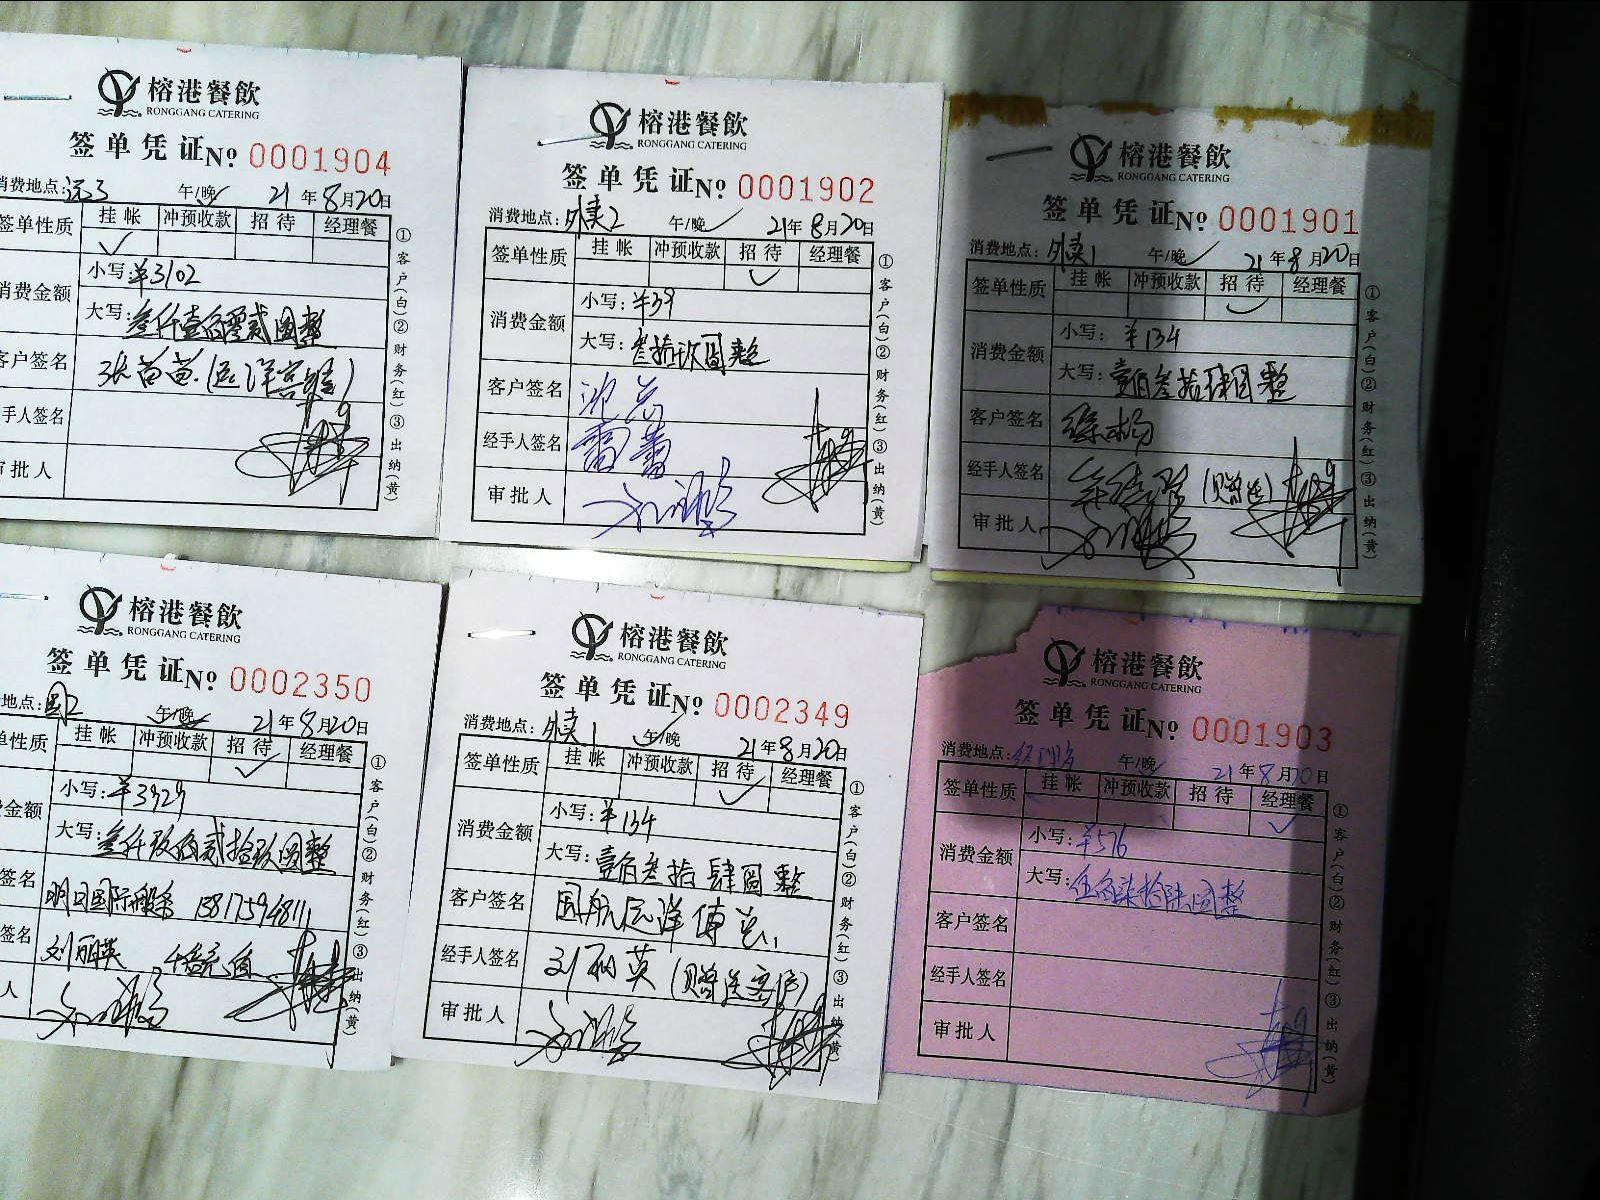 榕港餐飲
RONGGANG CATERING
签单凭证 No 0001904
消费地点: 午/晚 21年8月20日
签单性质 挂帐 冲预收款 招待 经理餐
消费金额 小写:¥3102
大写:叁仟壹佰零贰圆整
客户签名 张苗苗
手人签名
审批人
①客户(白)②财务(红)③出纳(黄)
榕港餐飲
RONGGANG CATERING
签单凭证 No 0001902
消费地点:外卖2 午/晚 21年8月20日
签单性质 挂帐 冲预收款 招待 经理餐
消费金额 小写:¥39
大写:叁拾玖圆整
客户签名
经手人签名
审批人
①客户(白)②财务(红)③出纳(黄)
榕港餐飲
RONGGANG CATERING
签单凭证 No 0001901
消费地点:外卖1 午/晚 21年8月20日
签单性质 挂帐 冲预收款 招待 经理餐
消费金额 小写:¥134
大写:壹佰叁拾肆圆整
客户签名
经手人签名 (赠送)
审批人
①客户(白)②财务(红)③出纳(黄)
榕港餐飲
RONGGANG CATERING
签单凭证 No 0002350
地点: 午/晚 21年8月20日
单性质 挂帐 冲预收款 招待 经理餐
金额 小写:¥3929
大写:叁仟玖佰贰拾玖圆整
签名 明日国际
签名 刘丽英
人
①客户(白)②财务(红)③出纳(黄)
榕港餐飲
RONGGANG CATERING
签单凭证 No 0002349
消费地点:外卖1 午/晚 21年8月20日
签单性质 挂帐 冲预收款 招待 经理餐
消费金额 小写:¥134
大写:壹佰叁拾肆圆整
客户签名 国航远洋傅总
经手人签名 刘丽英(赠送客户)
审批人
①客户(白)②财务(红)③出纳(黄)
榕港餐飲
RONGGANG CATERING
签单凭证 No 0001903
消费地点: 午/晚 21年8月20日
签单性质 挂帐 冲预收款 招待 经理餐
消费金额 小写:¥576
大写:伍佰柒拾陆圆整
客户签名
经手人签名
审批人
①客户(白)②财务(红)③出纳(黄)